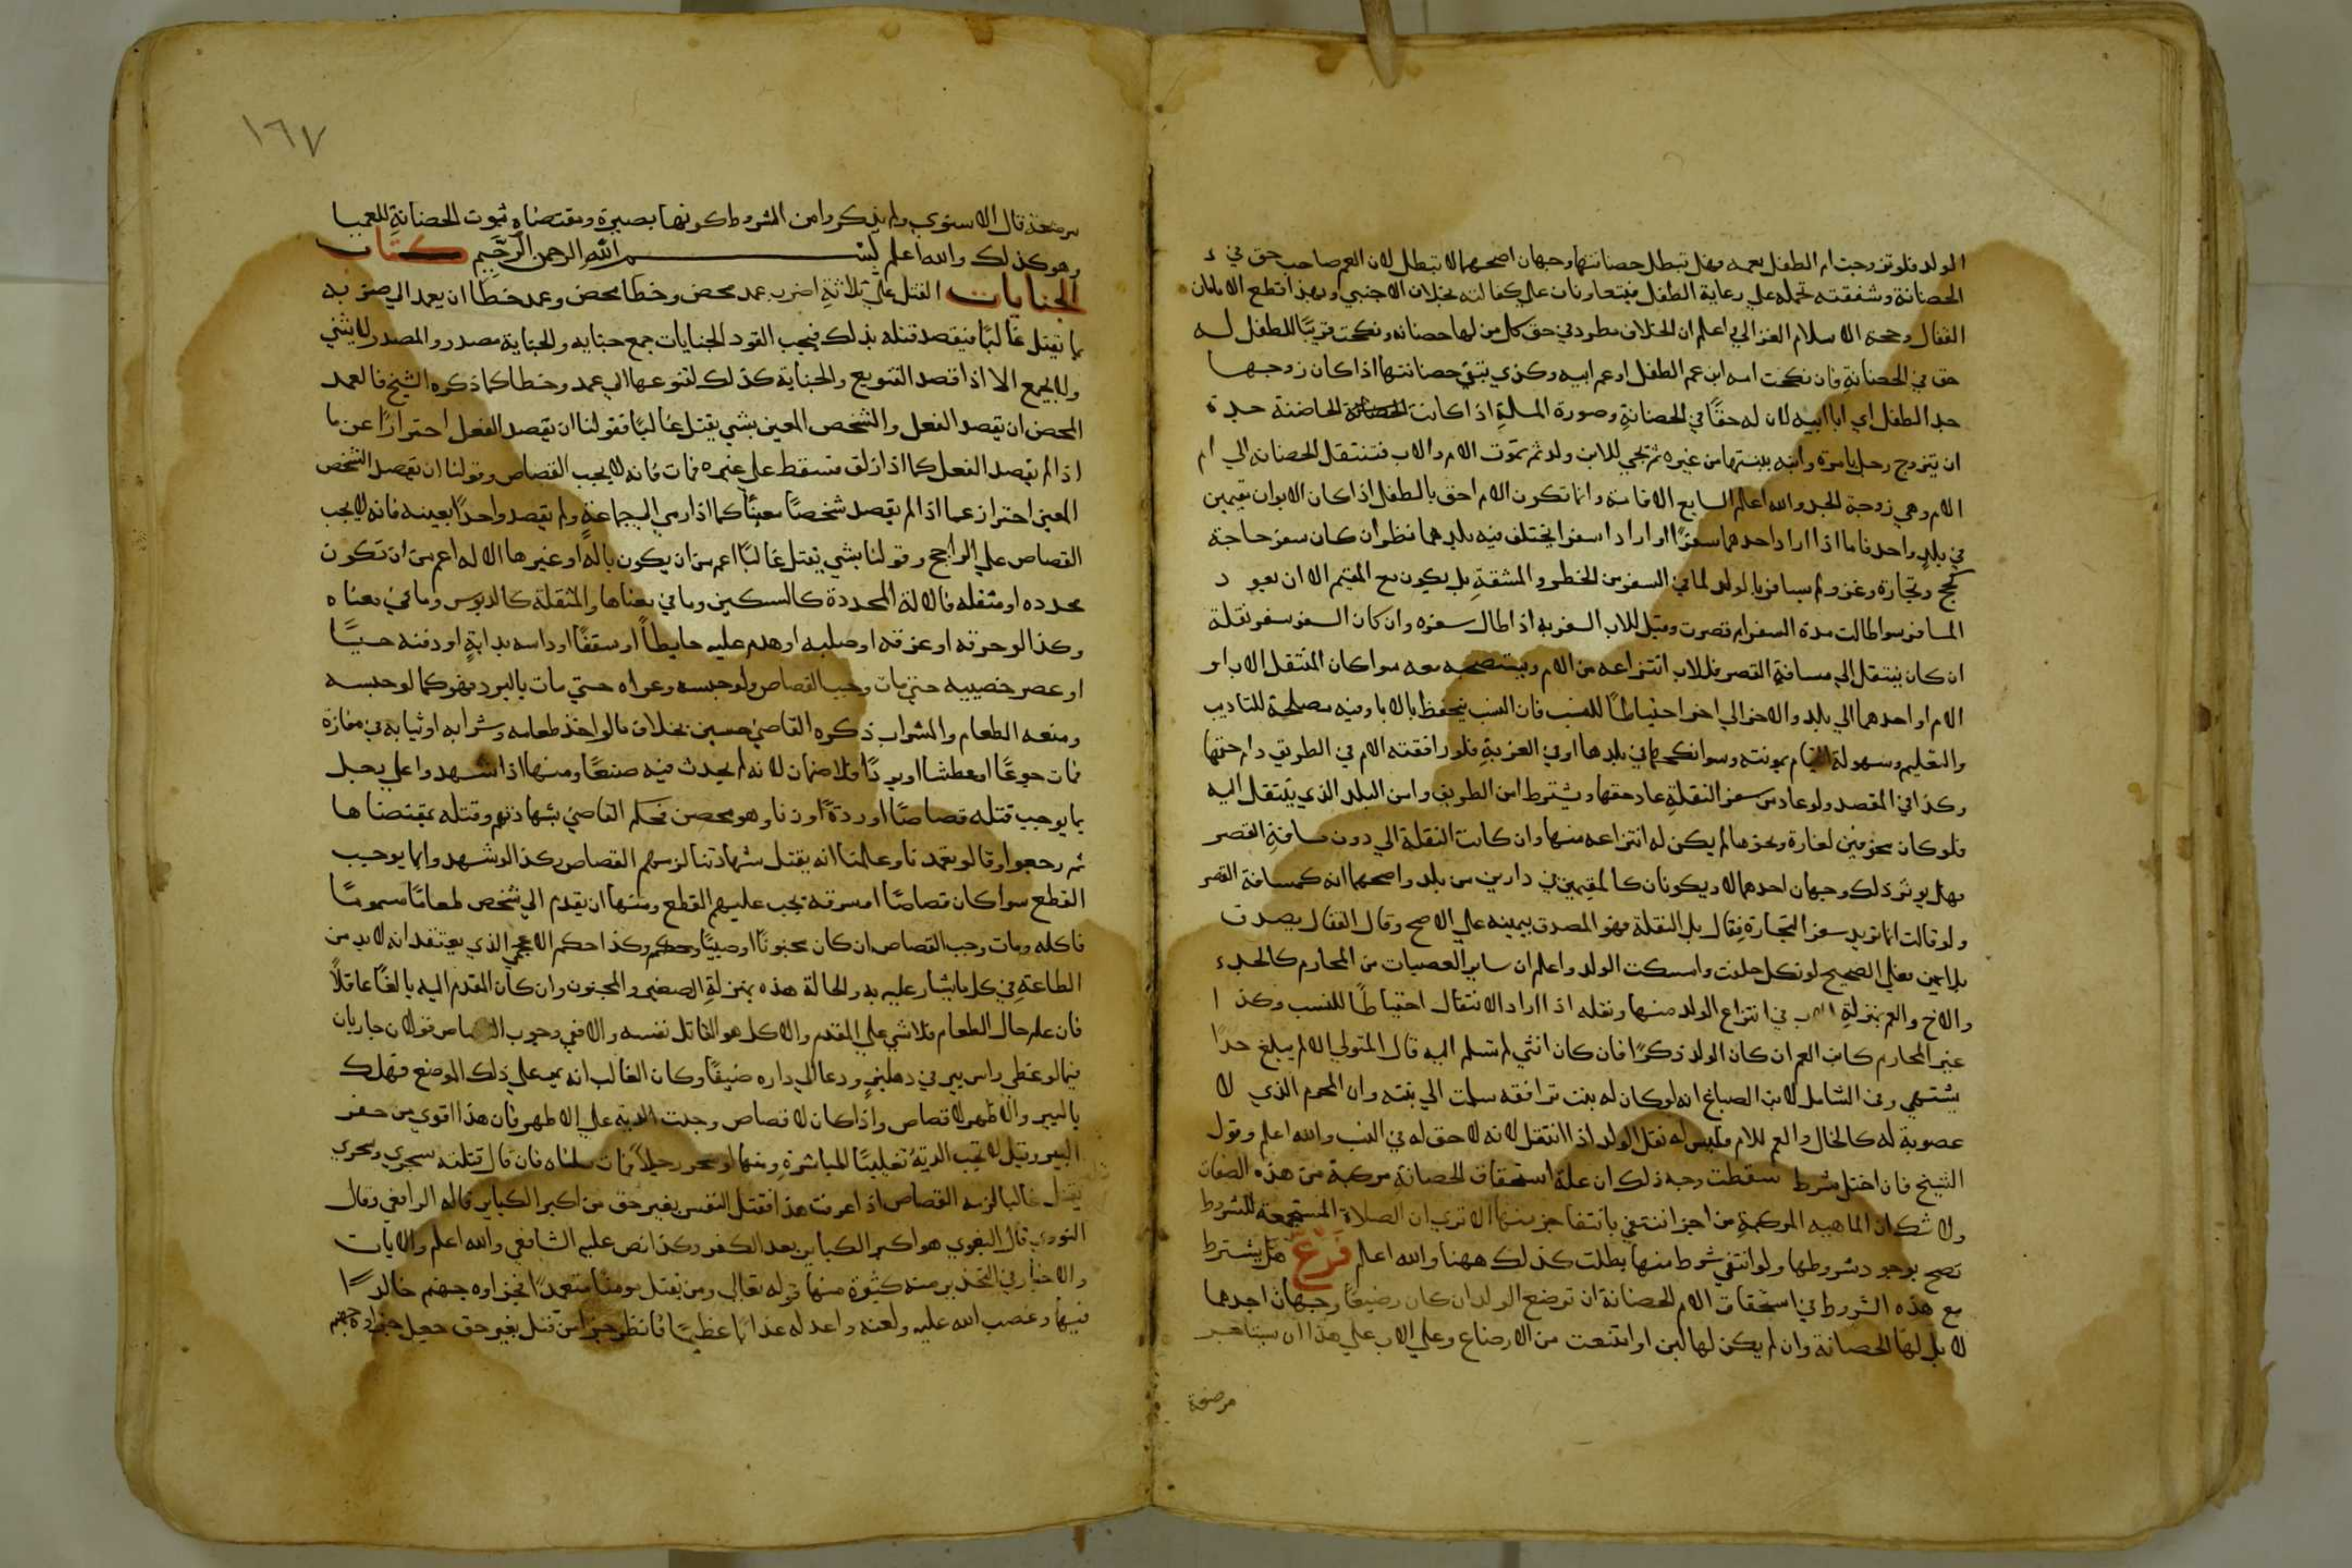 الولد فلو تزوجت ام الطفل بعمه فهل تبطل حضانتها وجهان اصحهما لا تبطل لان العم صاحب حق في
الحضانة وشفقته تحمله علي رعاية الطفل فيتعاونان علي كفالته بخلاف الاجنبي وبهذا قطع الامامان
القفال وحجة الاسلام الغزالي واعلم ان الخلاف مطرد في حق كل من لها حضانه ونكحت قريبًا للطفل له
حق في الحضانةِ فان نكحت امه ابن عم الطفل او عم ابيه وكذي تبقي حضانتها اذا كان زوجها
جد الطفل اي ابا ابيه لان له حقًا في الحضانةِ وصورة المسلة اذا كانت الحاضنة جدة
ان يتزوج رجل بامرة وابنه ببنتها من غيره ثم يجي للابن ولد ثم تموت الام والاب فتنتقل الحضانه الي ام
الام وهي زوجة الجد والله اعلم السابع الاقامة وانما تكون الام احق بالطفل اذا كان الابوان مقيمين
في بلدٍ واحد فاما اذا اراد احدهما سفرًا او ارادا سفرا يختلف فيه بلدهما نظر ان كان سفر حاجة
كحج وتجارة وغزو لم يسافر بالولد لما في السفر من الخطر والمشقةِ بل يكون مع المقيم الا ان يعود
المسافر سوا طالت مدة السفر ام قصرت وقيل للاب السفر به اذا طال سفره وان كان السفر سفر نقلة
ان كان ينتقل الي مسافة القصر فللاب انتزاعه من الام ويستصحبه معه سوا كان المنتقل الاب او
الام او احدهما الي بلد والاخر الي اخر احتياطًا للنسب فان النسب يتحفظ بالابا وفيه مصلحة للتاديب
والتعليم وسهولة القيام بمونته وسوا نكحها في بلدها او في الغربةِ فلو رافقته الام في الطريق دام حقها
وكذا في المقصد ولو عاد من سفر النقلةِ عاد حقها ويشترط امن الطريق وامن البلد الذي ينتقل اليه
فلو كان مخوفين لغارة ونحوها لم يكن له انتزاعه منها وان كانت النقلة الي دون مسافةِ القصر
فهل يوثر ذلك وجهان احدهما لا ويكونان كالمقيمين في دارين من بلد واصحهما انه كمسافة القصر
ولو قالت انما تريد سفر التجارة فقال بل النقلة فهو المصدق بيمينه علي الاصح وقال القفال يصدق
بلا يمين فعلي الصحيح لو نكل حلفت وامسكت الولد واعلم ان ساير العصبات من المحارم كالجد
والاخ والعم بمنزلةِ الاب في انتزاع الولد منها ونقله اذا اراد الانتقال احتياطًا للنسب وكذا
غير المحارم كابن العم ان كان الولد ذكرًا فان كان انثي لم تسلم اليه قال المتولي الا لم يبلغ حدًا
يشتهي وفي الشامل لابن الصباغ انه لو كان له بنت ترافقه سلمت الي بنته وان المحرم الذي لا
عصوبة له كالخال والعم للام فليس له نقل الولد اذا انتقل لانه لا حق له في النسب والله اعلم وقول
الشيخ فان اختل شرط سقطت وجه ذلك ان علة استحقاق الحضانةِ مركبة من هذه الصفات
ولا شك ان الماهيه المركبةِ من اجزا تنتفي بانتفا جز منها الا تري ان الصلاة المستجمعة للشروط
تصح بوجود شروطها ولو انتفي شرط منها بطلت كذلك ههنا والله اعلم فرع هل يشترط
مع هذه الشروط في استحقاق الام الحضانة ان ترضع الولد ان كان رضيعًا وجهان احدهما
لا بل لها الحضانة وان لم يكن لها لبن او امتنعت من الارضاع وعلي الاب علي هذا ان يستاجر
مرضعة
١٦٧
مرضعة قال الاسنوي ولم يذكروا من الشروط كونها بصيرة ومقتضاه ثبوت الحضانةِ للعميا
وهو كذلك والله اعلم بسم الله الرحمن الرحيم كتاب
الجنايات القتل علي ثلاثةِ اضرب عمد محض وخطا محض وعمد خطا ان يعمد الي ضربه
بما يقتل غالبًا فيقصد قتله بذلك فيجب القود الجنايات جمع جنايه والجناية مصدر والمصدر لا يثني
ولا يجمع الا اذا قصد التنويع والجناية كذلك لتنوعها الي عمد وخطا كما ذكره الشيخ فالعمد
المحض ان يقصد الفعل والشخص المعين بشي يقتل غالبًا فقولنا ان يقصد الفعل احترازًا عن ما
اذا لم يقصد الفعل كما اذا زلق فسقط علي غيره فمات فانه لا يجب القصاص وقولنا ان يقصد الشخص
المعين احتراز عما اذا لم يقصد شخصًا معينًا كما اذا رمي الي جماعةٍ ولم يقصد واحدًا بعينه فانه لا يجب
القصاص علي الراجح وقولنا بشي يقتل غالبًا اعم من ان يكون بالةٍ او غيرها الاله اعم من ان تكون
محدده او مثقله فالالة المحددة كالسكين وما في معناها والمثقلة كالدبوس وما في معناه
وكذا لو حرقه او غرقه او صلبه او هدم عليه حايطاً او سقفًا او داسه بدابةٍ او دفنه حيًا
او عصر خصييه حتي مات وجب القصاص ولو حبسه وعراه حتي مات بالبرد فهو كما لو حبسه
ومنعه الطعام والشراب ذكره القاضي حسين بخلاف ما لو اخذ طعامه وشرابه او ثيابه في مفازة
فمات جوعًا او عطشا او بردًا فلا ضمان لانه لم يحدث فيه صنعًا ومنها اذا شهدوا علي رجل
بما يوجب قتله قصاصًا او ردةً او زنا وهو محصن فحكم القاضي بشهادتهم وقتله بمقتضاها
ثم رجعوا وقالو تعمدنا وعلمنا انه يقتل بشهادتنا لزمهم القصاص وكذا لو شهدوا بما يوجب
القطع سوا كان قصاصًا ام سرقة يجب عليهم القطع ومنها ان يقدم الي شخص طعامًا مسمومًا
فاكله ومات وجب القصاص ان كان مجنونًا او صبيًا وكذا حكم الاعجمي الذي يعتقد انه لا بد من
الطاعةِ في كل ما يشار عليه به والحالة هذه بمنزلةِ الصغير والمجنون وان كان المقدم اليه بالغًا عاقلاً
فان علم حال الطعام فلا شي علي المقدم والاكل هو القاتل نفسه والا ففي وجوب القصاص قولان جاريان
فيما لو غطي راس بير في دهليزٍ ودعا الي داره ضيفًا وكان الغالب انه يمر علي ذلك الموضع فهلك
بالبير والاظهر لا قصاص واذا كان لا قصاص وجبت الديه علي الاظهر فان هذا اقوي من حفر
البير وقيل لا تجب الدية تغليبًا للمباشرةِ ومنها لو سحر رجلاً فمات سالناه فان قال قتلته بسحري وسحري
يقتل غالبا لزمه القصاص اذا عرفت هذا فقتل النفس بغير حق من اكبر الكباير قاله الرافعي وقال
النووي قال البغوي هو اكبر الكباير بعد الكفر وكذا نص عليه الشافعي والله اعلم والايات
والاخبار في التحذير منه كثيرة منها قوله تعالي ومن يقتل مومنا متعمدًا فجزاوه جهنم خالدًا
فيها وغضب الله عليه ولعنه واعد له عذابًا عظيمًا فانظر جزا من قتل بغير حق جعل جزاوه جهنم